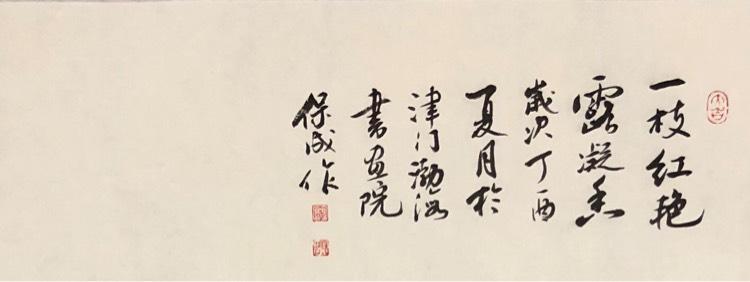 一枝红艳
露凝香
歲次丁酉
夏月於
津门渤海
書画院
保成作